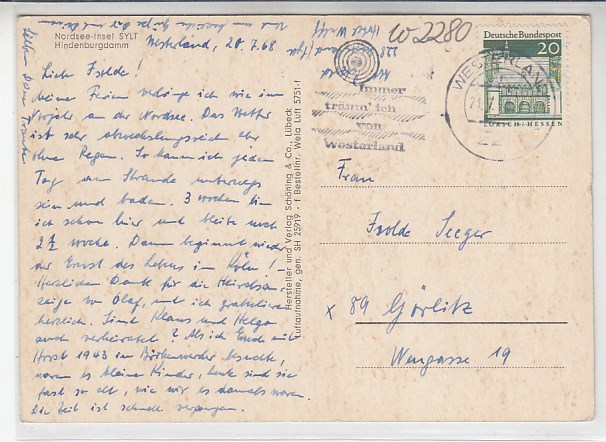 Nordsee-Insel SYLT
Hindenburgdamm
Westerland, 20.7.68
Liebe Isolde!
Meine Ferien verbringe ich wie im
Vorjahr an der Nordsee. Das Wetter
ist sehr abwechslungsreich aber
ohne Regen. So kann ich jeden
Tag am Strande unterwegs
sein und baden. 3 Wochen bin
ich schon hier und bleibe noch
2 ½ Woche. Dann beginnt wieder
der Ernst des Lebens in Köln! –
Herzlichen Dank für die Heiratsan-
zeige von Olaf, und ich gratuliere
herzlich. Sind Klaus und Helga
auch verheiratet? Als ich Euch mit
Horst 1943 in besuchte,
waren es kleine Kinder, heute sind sie
fast so alt, wie wir es damals waren.
Die Zeit ist schnell vergangen.
Hersteller und Verlag Schöning & Co., Lübeck
Luftaufnahme, gen. SH 25919 · f Bestellnr. Wela Luft 5751·f
W 2280
Immer
träum' ich
von
Westerland
WESTERLAND
22
Deutsche Bundespost
20
LORSCH/HESSEN
Frau
Isolde Seeger
x 89 Görlitz
Wengasse 19